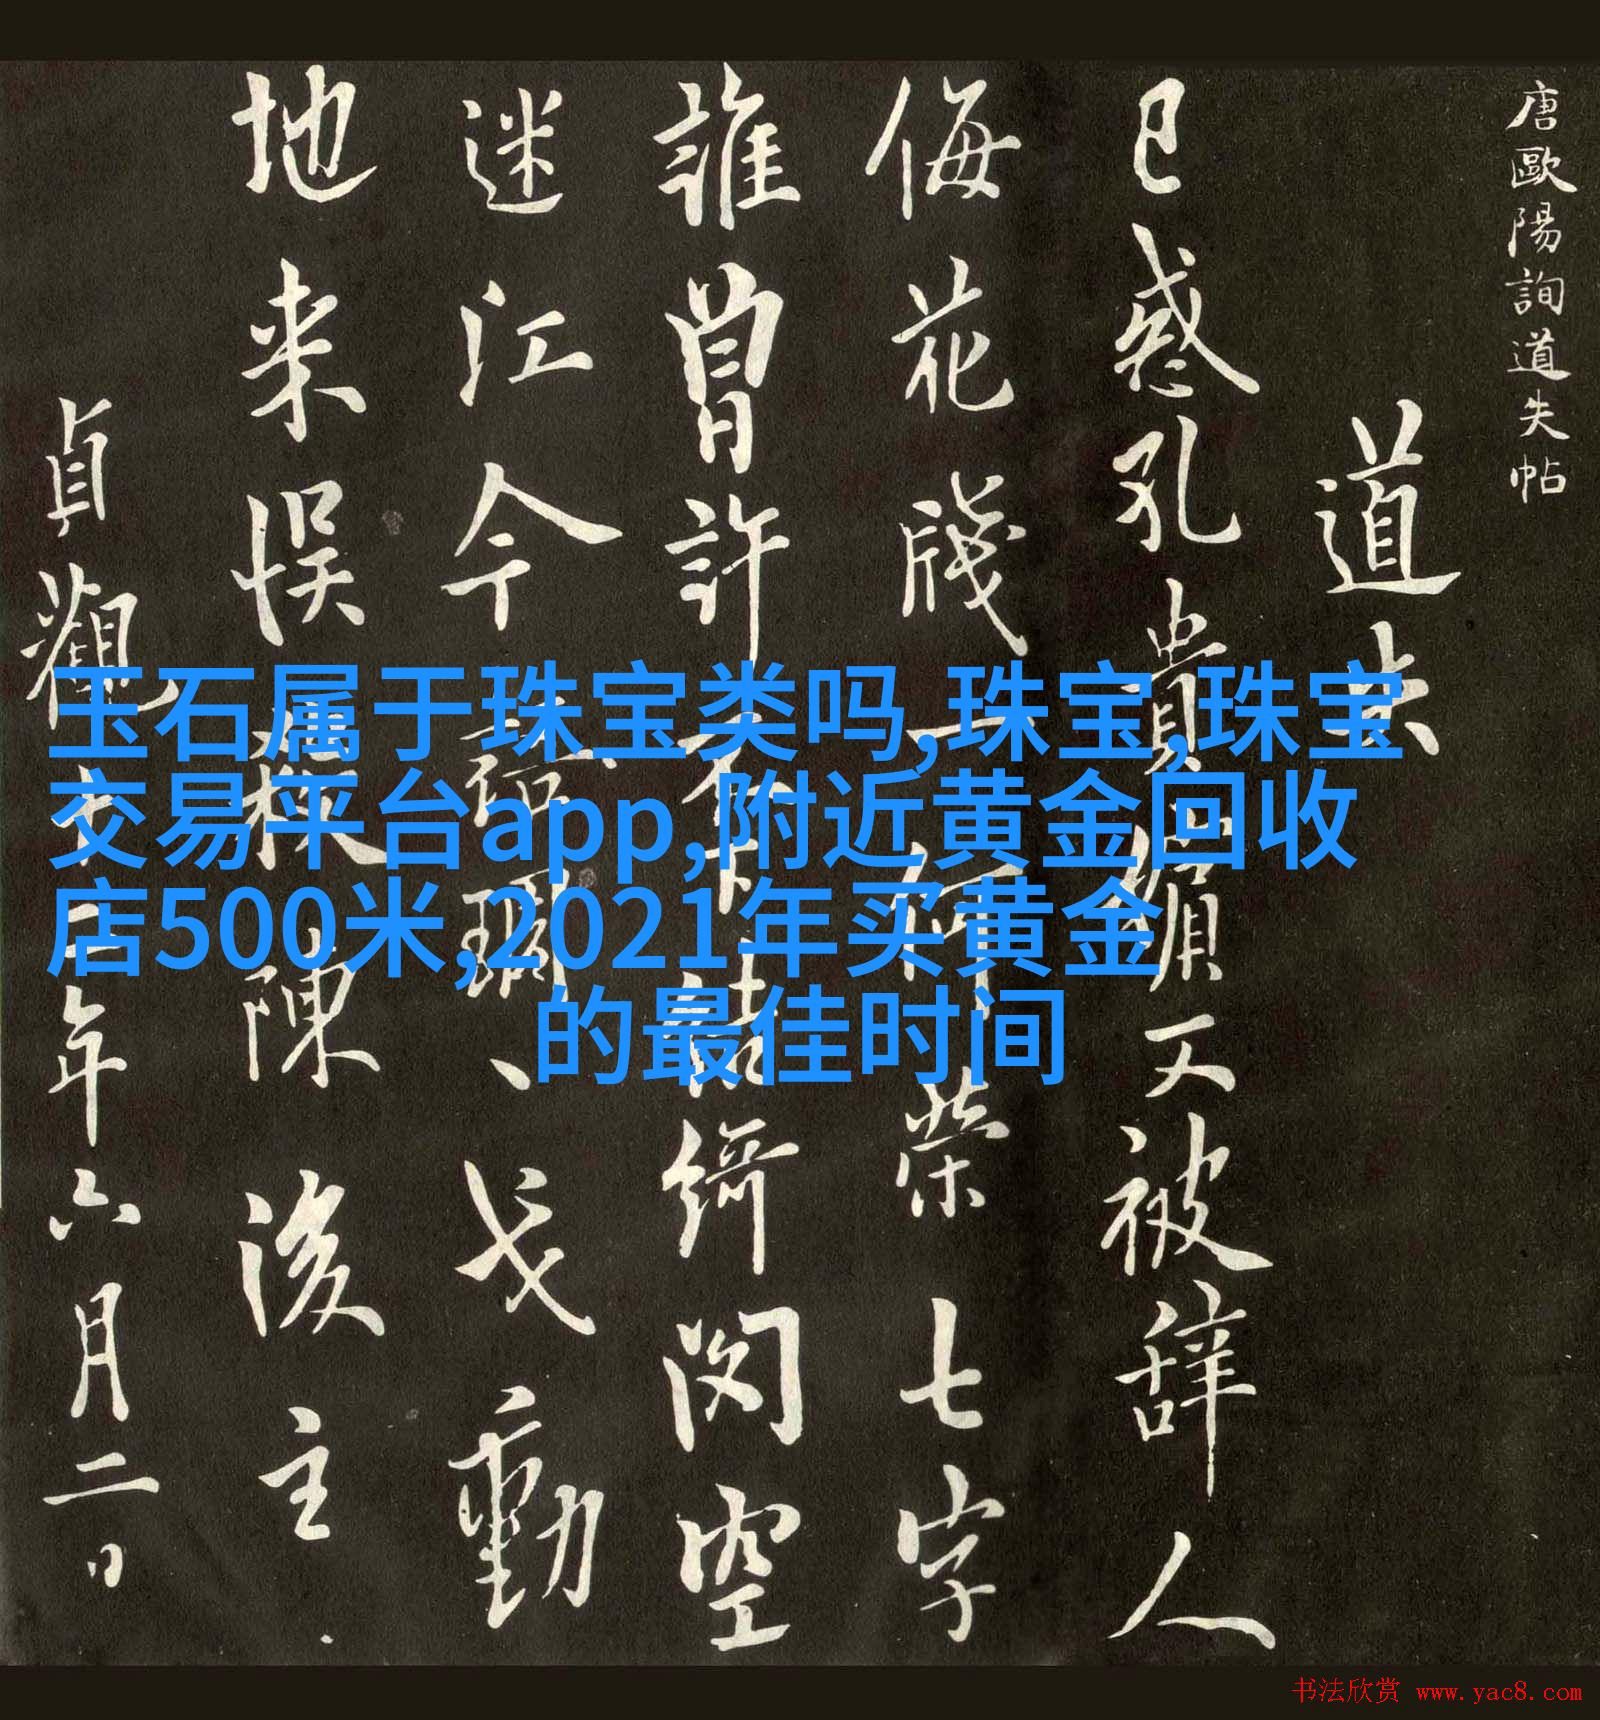 唐歐陽詢道失帖
道失
已惑孔貴嬪又被辭人
侮花牋一何榮七字
誰曾許不下結綺閣空
迷江令語瑚、戈動
地来悮殺陳後主
貞觀十二年六月二日
玉石属于珠宝类吗,珠宝,珠宝
交易平台app,附近黄金回收
店500米,2021年买黄金
的最佳时间
书法欣赏 www.yac8.com